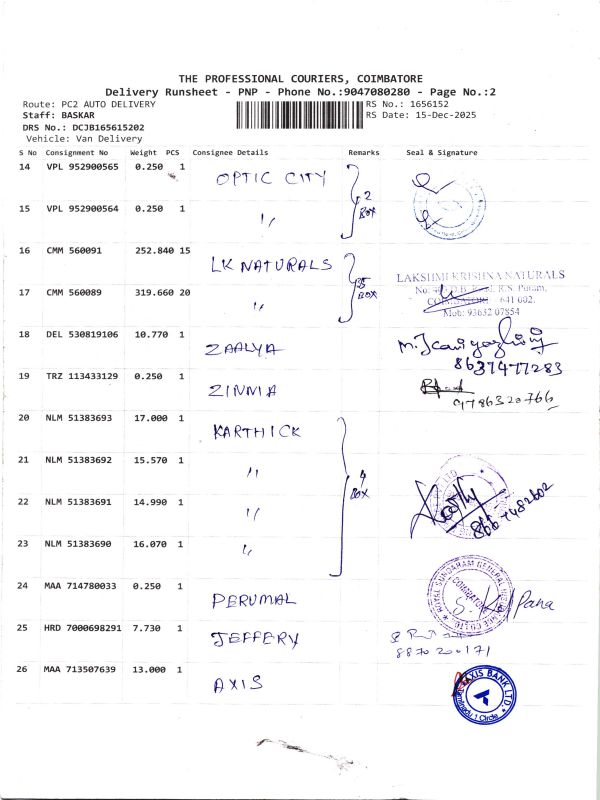 THE PROFESSIONAL COURIERS, COIMBATORE
Delivery Runsheet - PNP - Phone No.:9047080280 - Page No.:2
Route: PC2 AUTO DELIVERY RS No.: 1656152
Staff: BASKAR RS Date: 15-Dec-2025
DRS No.: DCJB165615202
Vehicle: Van Delivery
S No Consignment No Weight PCS Consignee Details Remarks Seal & Signature
14 VPL 952900565 0.250 1 OPTIC CITY 2 BOX
15 VPL 952900564 0.250 1 "
16 CMM 560091 252.840 15 LK NATURALS 35 BOX
17 CMM 560089 319.660 20 "
LAKSHMI KRISHNA NATURALS
R.S. Puram,
COIMBATORE - 641 002.
Mob: 93632 07854
18 DEL 530819106 10.770 1 ZAALYA
8637477283
19 TRZ 113433129 0.250 1 ZINNIA
9786320766
20 NLM 51383693 17.000 1 KARTHICK 4 BOX
21 NLM 51383692 15.570 1 "
22 NLM 51383691 14.990 1 "
8667482602
23 NLM 51383690 16.070 1 "
24 MAA 714780033 0.250 1 PERUMAL
ROYAL SUNDARAM GENERAL INSURANCE CO LTD.
COIMBATORE
25 HRD 7000698291 7.730 1 JEFFERY
8870200171
26 MAA 713507639 13.000 1 AXIS
AXIS BANK LTD.
Circle